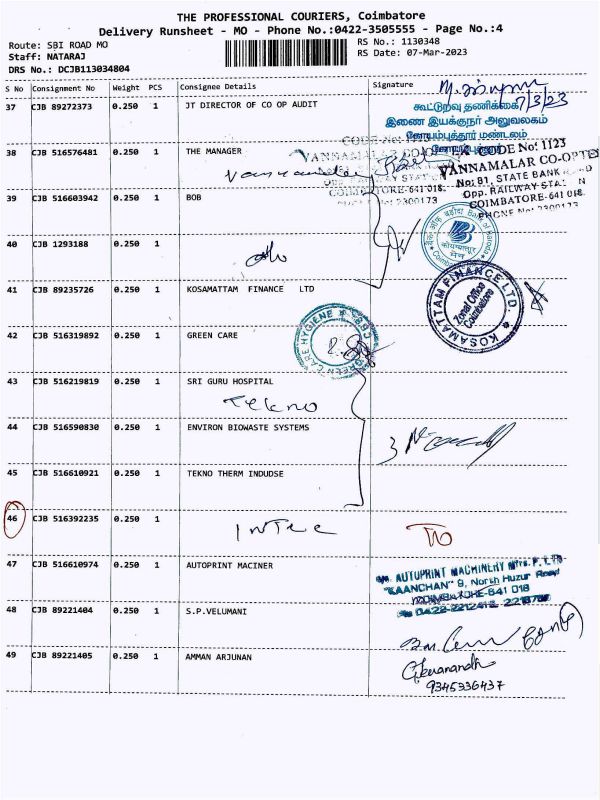 THE PROFESSIONAL COURIERS, Coimbatore
Delivery Runsheet - MO - Phone No.:0422-3505555 - Page No.:4
Route: SBI ROAD MO
RS No.: 1130348
Staff: NATARAJ
RS Date: 07-Mar-2023
DRS No.: DCJB113034804
S No Consignment No Weight PCS Consignee Details Signature
37 CJB 89272373 0.250 1 JT DIRECTOR OF CO OP AUDIT
7/3/23
கூட்டுறவு தணிக்கை
இணை இயக்குநர் அலுவலகம்
கோயம்புத்தூர் மண்டலம்
38 CJB 516576481 1 THE MANAGER
CODE No: 1123
VANNAMALAR CO-OPTEX
No: 81, STATE BANK ROAD
Opp. RAILWAY STATION
COIMBATORE-641 018.
PHONE No: 2300173
39 CJB 516603942 0.250 1 BOB
Bank of Baroda
40 CJB 1293188 0.250 1
41 CJB 89235726 0.250 1 KOSAMATTAM FINANCE LTD
KOSAMATTAM FINANCE LTD.
Zonal Office
Coimbatore
42 CJB 516319892 0.250 1 GREEN CARE
GREEN CARE HYGIENE
43 CJB 516219819 0.250 1 SRI GURU HOSPITAL
Tekno
44 CJB 516590830 0.250 1 ENVIRON BIOWASTE SYSTEMS
45 CJB 516610921 0.250 1 TEKNO THERM INDUDSE
46 CJB 516392235 0.250 1
47 CJB 516610974 0.250 1 AUTOPRINT MACINER
AUTOPRINT MACHINERY Mfrs. P. LTD
"KAANCHAN" 9, North Huzur Road
COIMBATORE-641 018
48 CJB 89221404 0.250 1 S.P.VELUMANI
49 CJB 89221405 0.250 1 AMMAN ARJUNAN
9345336437